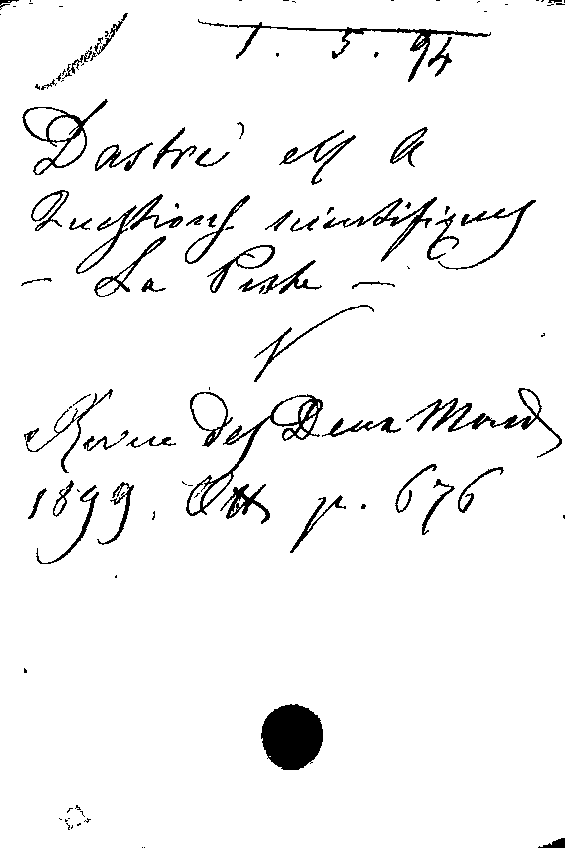 1. 5. 94
Dastre M A
Questions scientifiques
- La Peste -
V
Revue des Deux Mondes
1899. Oct p. 676